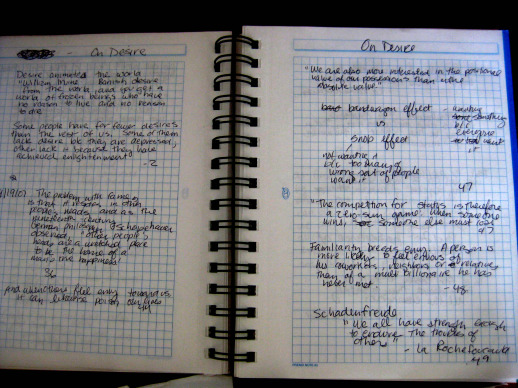 - On Desire
Desire animates the world
"William Irvine Banish desire
from the world, and you get a
world of frozen beings who have
no reason to live and no reason
to die.
Some people have far fewer desires
than the rest of us. Some of them
lack desire b/c they are depressed,
others lack it because they have
achieved enlightenment"
-2
The problem with fame
is that it resides in other
people's heads and as the
German philosopher Schopenhauer
observed, "other people's
heads are a wretched place
to be the home of a
man's true happiness."
36
and when others feel envy toward us
it may poison our lives
44
On Desire
"We are also more interested in the positional
value of our possessions than in the
absolute value."
bandwagon effect - wanting
something
b/c
everyone
want
it
vs
snob effect
not wanting it
b/c too many of
wrong sort of people
want it
47
"The competition for status is therefore
a zero-sum game. When someone
wins, someone else must lose
47
Familiarity breeds envy. A person is
more likely to feel envious of
his coworkers, neighbors or relatives
than of a multi billionaire he has
never met.
- 48
Schadenfreude
"We all have strength enough
to endure the troubles of
others"
- La Rochefoucauld
49